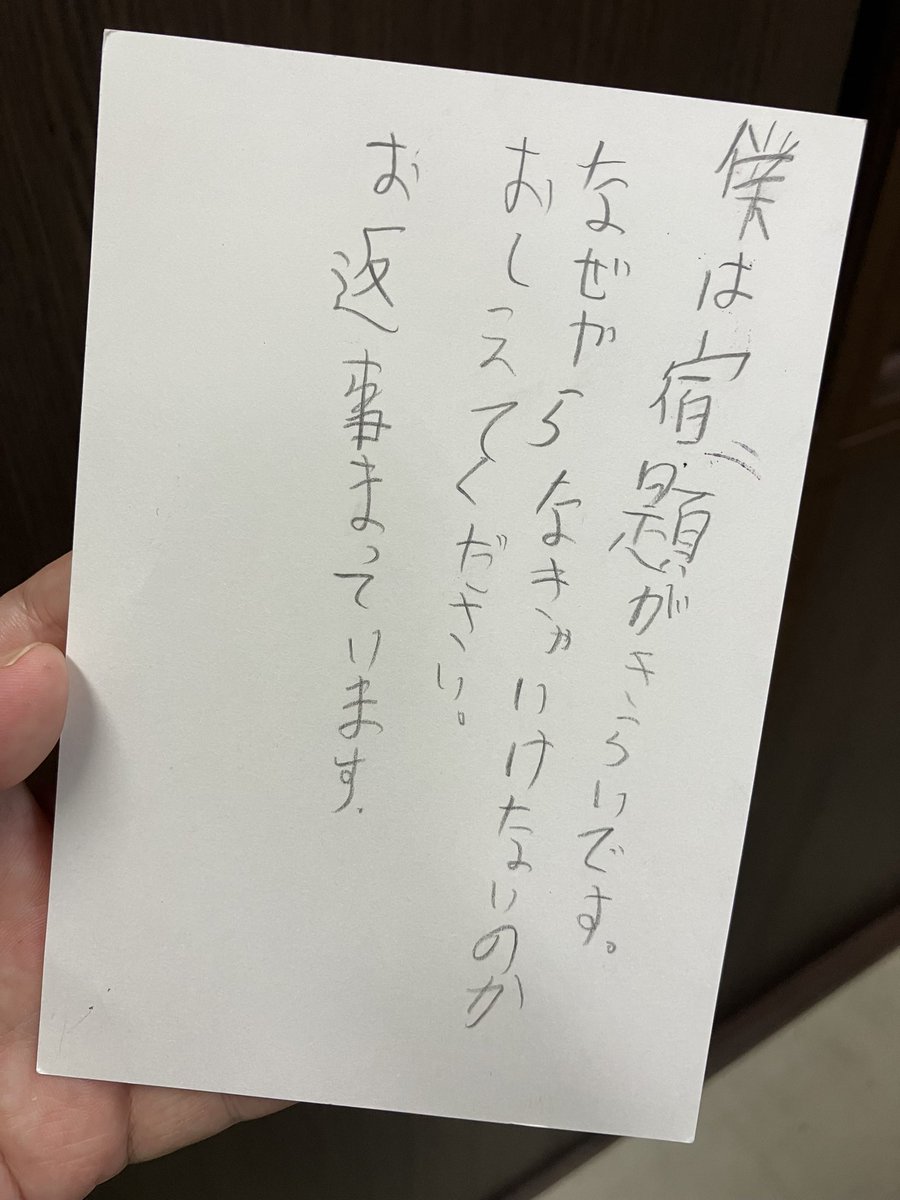 僕は宿題がきらいです。
なぜやらなきゃいけないのか
おしえてください。
お返事まっています.